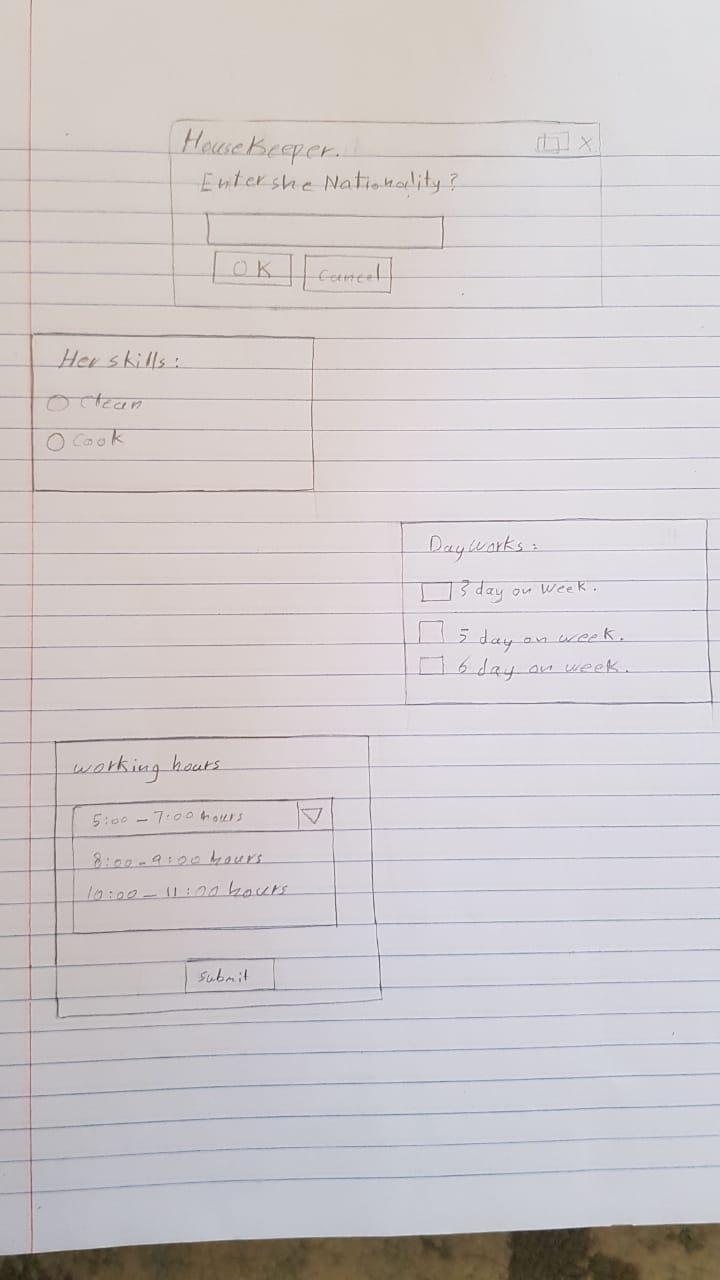 HouseKeeper. X
Enter she Nationality?
OK Cancel
Her skills:
Clean
Cook
Day works:
3 day on week.
5 day on week.
6 day on week.
working hours
5:00 - 7:00 hours
8:00 - 9:00 hours
10:00 - 11:00 hours
submit